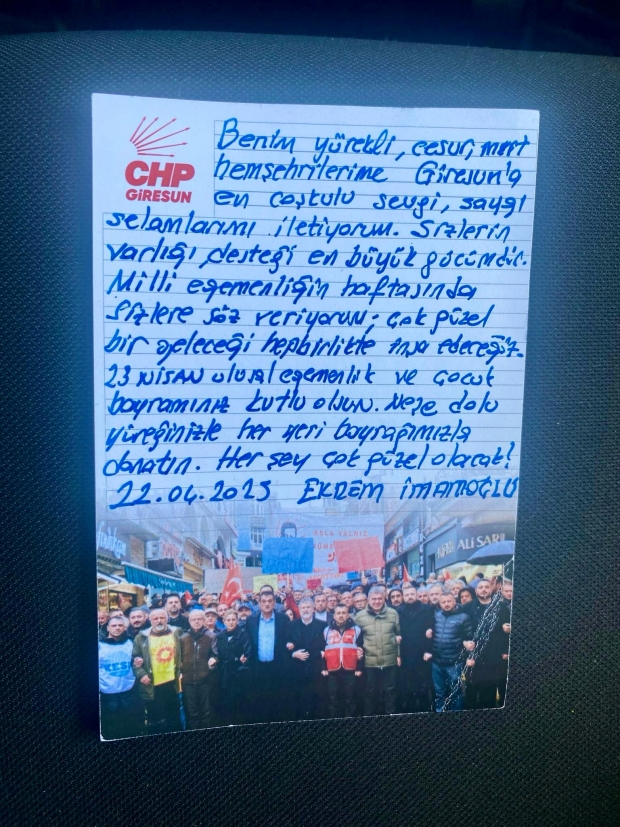 CHP
GİRESUN
Benim yürekli, cesur, mert
hemşehrilerime Giresun'a
en coşkulu sevgi, saygı
selamlarımı iletiyorum. Sizlerin
varlığı, desteği en büyük gücümdür.
Milli egemenliğin haftasında
sizlere söz veriyorum; çok güzel
bir geleceği hepbirlikte inşa edeceğiz.
23 NİSAN ulusal egemenlik ve çocuk
bayramınız kutlu olsun. Neşe dolu
yüreğinizle her yeri bayrağımızla
donatın. Her şey çok güzel olacak!
22.04.2025 EKREM İMAMOĞLU
ASLA YALNIZ
ALİ SARI